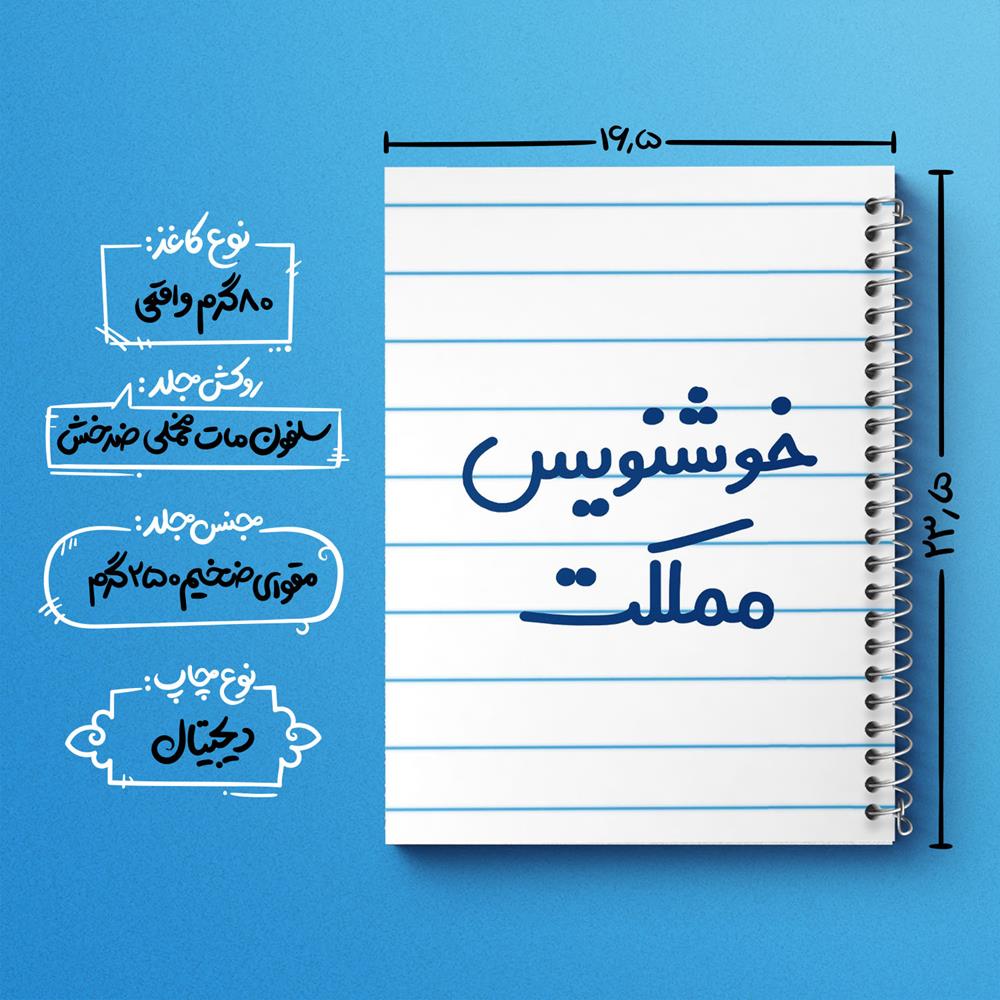 ۱۶٫۵
۲۳٫۵
خوشنویس
مملکت
نوع کاغذ:
۸۰گرم واقعی
روکش جلد:
سلفون مات مخملی ضدخش
جنس جلد:
مقوای ضخیم ۲۵۰گرم
نوع چاپ:
دیجیتال